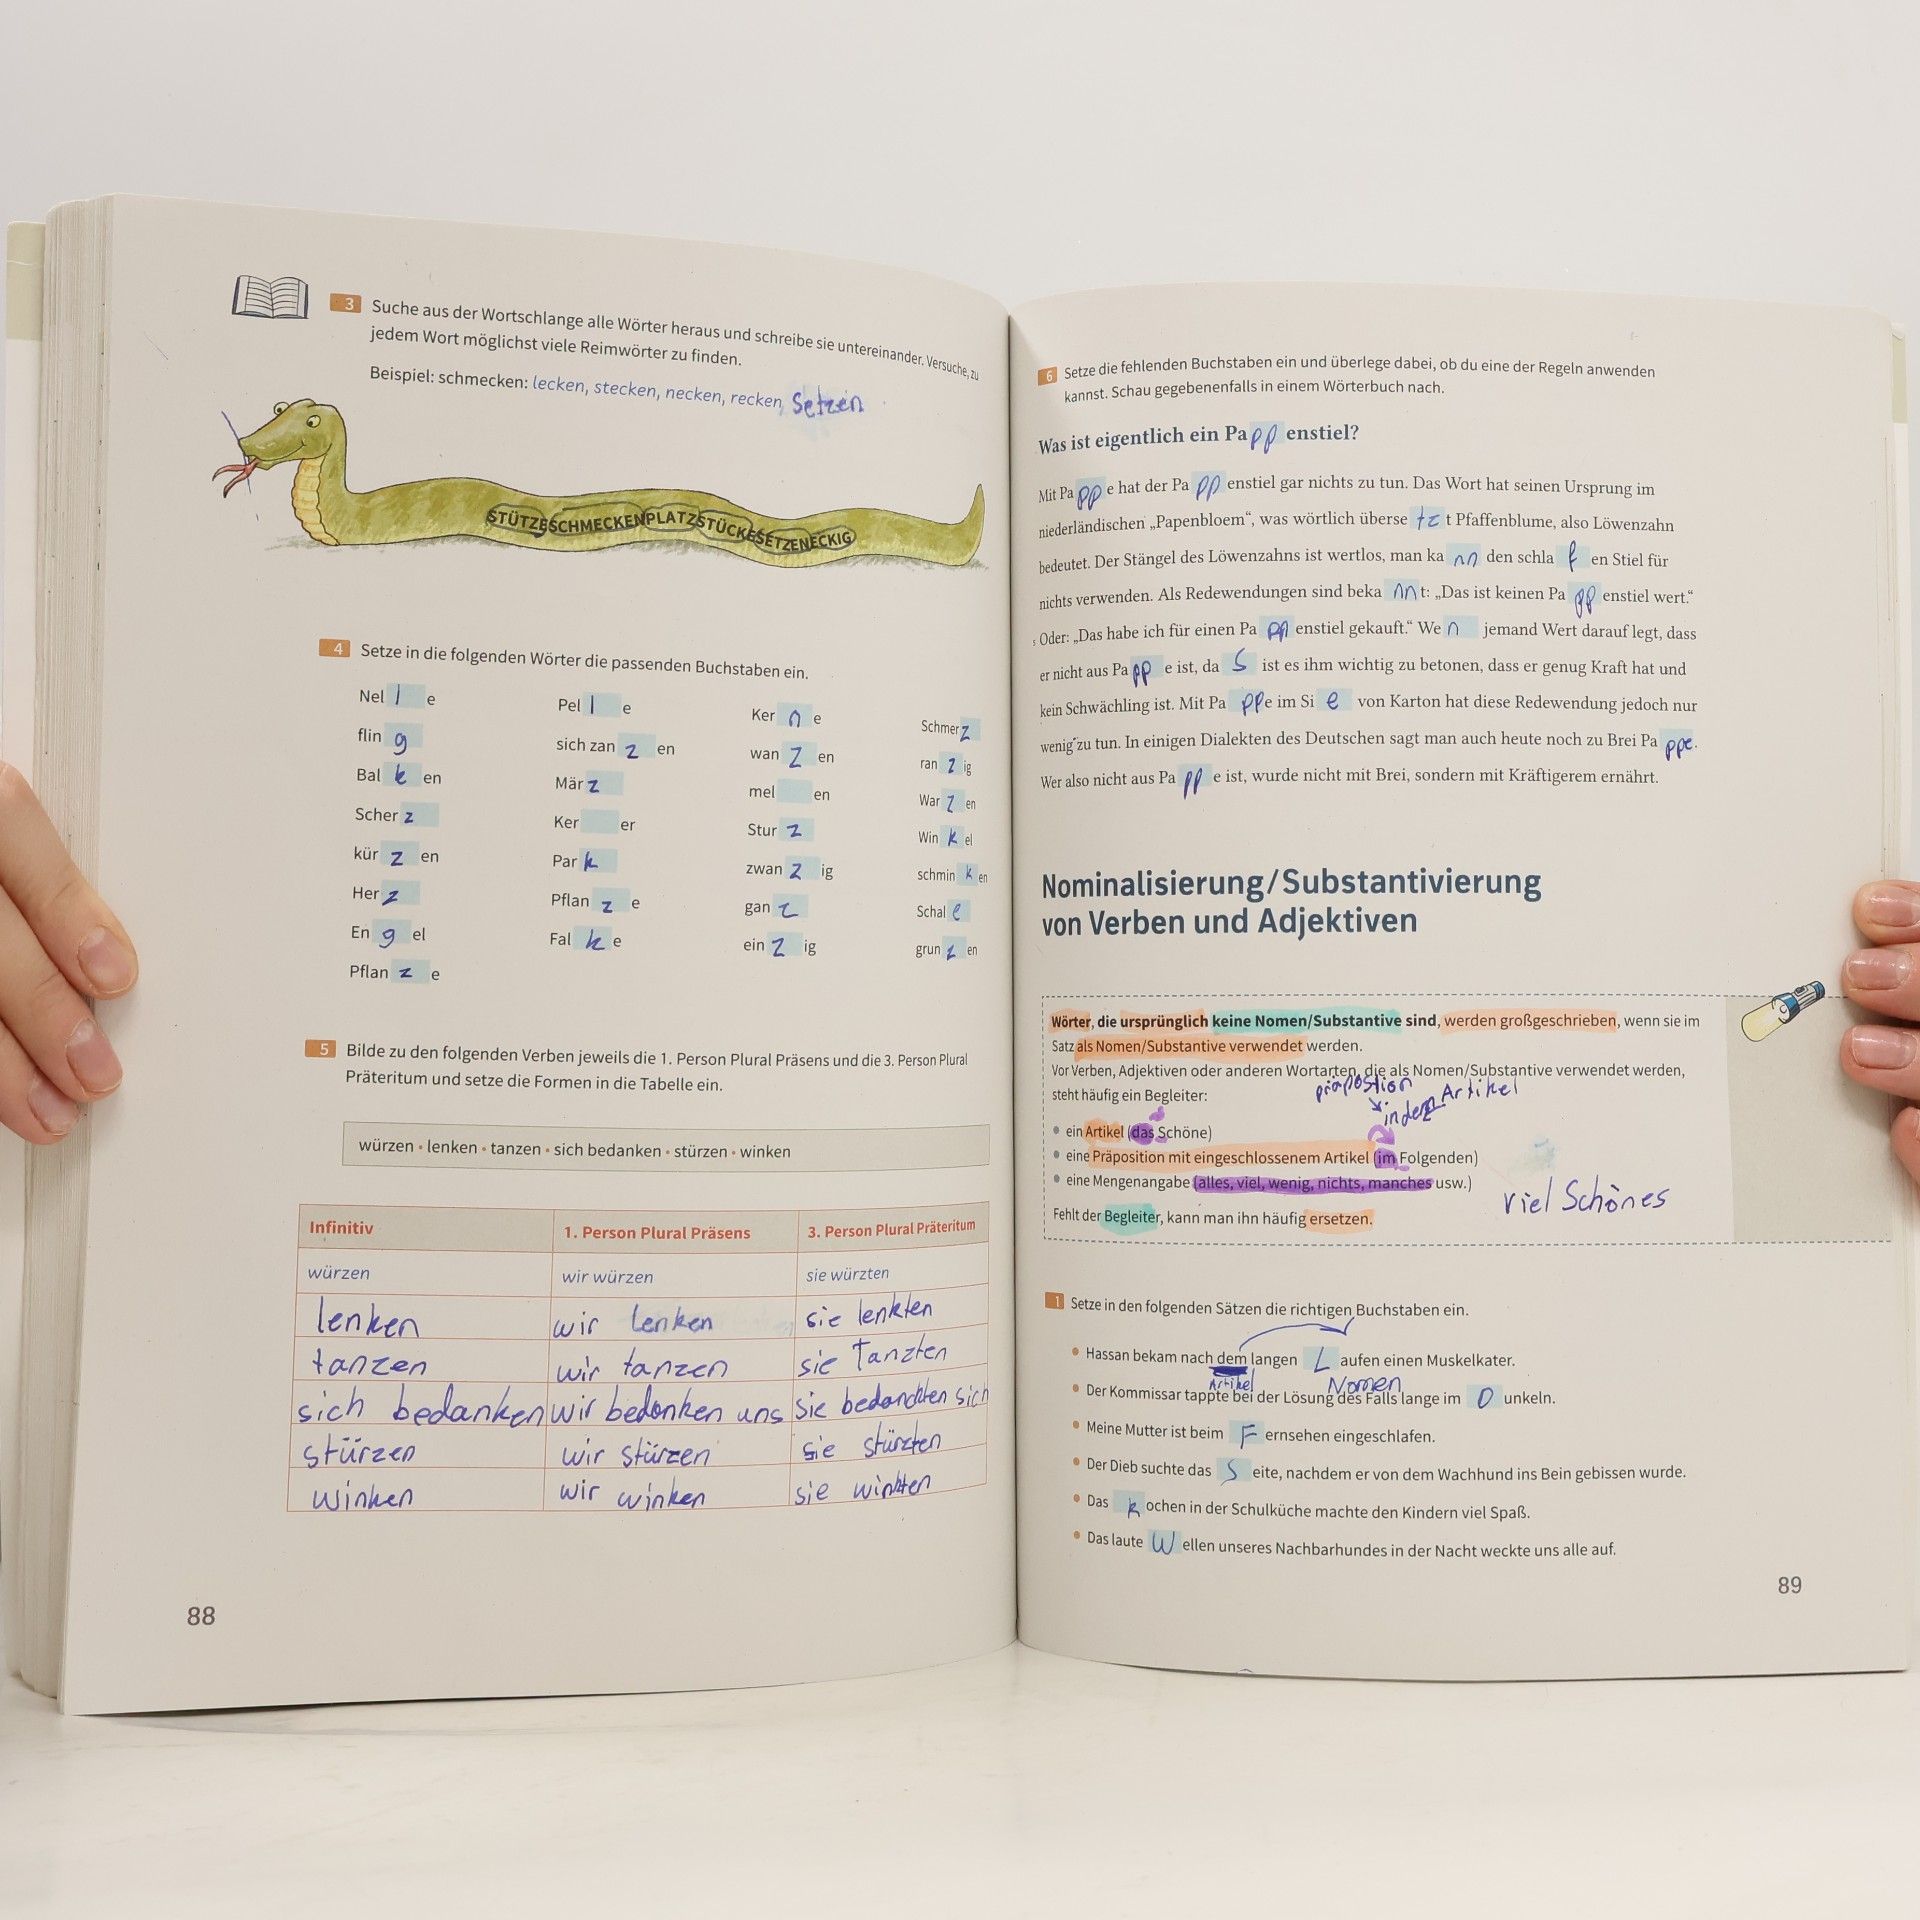 3 Suche aus der Wortschlange alle Wörter heraus und schreibe sie untereinander. Versuche, zu
jedem Wort möglichst viele Reimwörter zu finden.
Beispiel: schmecken: lecken, stecken, necken, recken, Setzen
STÜTZESCHMECKENPLATZSTÜCKESETZENECKIG
4 Setze in die folgenden Wörter die passenden Buchstaben ein.
Nel l e
flin g
Bal k en
Scher z
kür z en
Her z
En g el
Pflan z e
Pel l e
sich zan z en
Mär z
Ker er
Par k
Pflan z e
Fal k e
Ker n e
wan z en
mel en
Stur z
zwan z ig
gan z
ein z ig
Schmer z
ran z ig
War z en
Win k el
schmin k en
Schal e
grun z en
5 Bilde zu den folgenden Verben jeweils die 1. Person Plural Präsens und die 3. Person Plural
Präteritum und setze die Formen in die Tabelle ein.
würzen • lenken • tanzen • sich bedanken • stürzen • winken
Infinitiv 1. Person Plural Präsens 3. Person Plural Präteritum
würzen wir würzen sie würzten
lenken wir lenken sie lenkten
tanzen wir tanzen sie Tanzten
sich bedanken wir bedanken uns sie bedanckten sich
stürzen wir stürzen sie stürzten
winken wir winken sie winkten
88
6 Setze die fehlenden Buchstaben ein und überlege dabei, ob du eine der Regeln anwenden
kannst. Schau gegebenenfalls in einem Wörterbuch nach.
Was ist eigentlich ein Pa pp enstiel?
Mit Pa pp e hat der Pa pp enstiel gar nichts zu tun. Das Wort hat seinen Ursprung im
niederländischen „Papenbloem“, was wörtlich überse tz t Pfaffenblume, also Löwenzahn
bedeutet. Der Stängel des Löwenzahns ist wertlos, man ka nn den schla f en Stiel für
nichts verwenden. Als Redewendungen sind beka nn t: „Das ist keinen Pa pp enstiel wert.“
Oder: „Das habe ich für einen Pa pp enstiel gekauft.“ We n jemand Wert darauf legt, dass
er nicht aus Pa pp e ist, da S ist es ihm wichtig zu betonen, dass er genug Kraft hat und
kein Schwächling ist. Mit Pa pp e im Si e von Karton hat diese Redewendung jedoch nur
wenig zu tun. In einigen Dialekten des Deutschen sagt man auch heute noch zu Brei Pa ppe.
Wer also nicht aus Pa pp e ist, wurde nicht mit Brei, sondern mit Kräftigerem ernährt.
Nominalisierung/Substantivierung
von Verben und Adjektiven
Wörter, die ursprünglich keine Nomen/Substantive sind, werden großgeschrieben, wenn sie im
Satz als Nomen/Substantive verwendet werden.
Vor Verben, Adjektiven oder anderen Wortarten, die als Nomen/Substantive verwendet werden,
steht häufig ein Begleiter:
präpostion
Artikel
• ein Artikel (das Schöne)
• eine Präposition mit eingeschlossenem Artikel (im Folgenden)
• eine Mengenangabe (alles, viel, wenig, nichts, manches usw.)
viel Schönes
Fehlt der Begleiter, kann man ihn häufig ersetzen.
1 Setze in den folgenden Sätzen die richtigen Buchstaben ein.
• Hassan bekam nach dem langen L aufen einen Muskelkater.
Artikel Nomen
• Der Kommissar tappte bei der Lösung des Falls lange im D unkeln.
• Meine Mutter ist beim F ernsehen eingeschlafen.
• Der Dieb suchte das S eite, nachdem er von dem Wachhund ins Bein gebissen wurde.
• Das k ochen in der Schulküche machte den Kindern viel Spaß.
• Das laute W ellen unseres Nachbarhundes in der Nacht weckte uns alle auf.
89